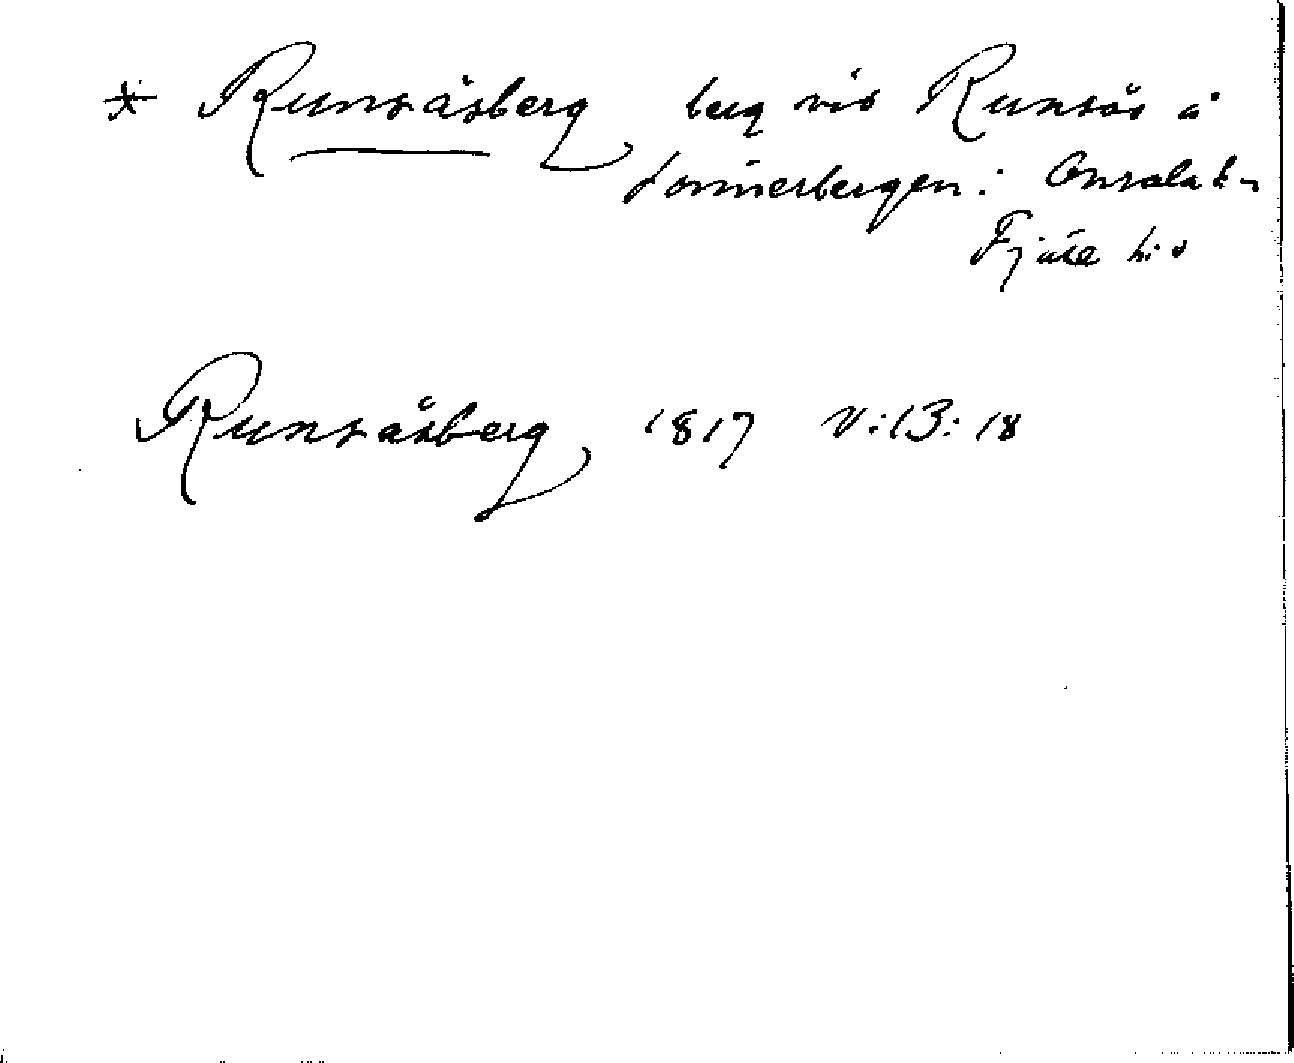 * Runsåsberg berg vid Runsås å
Sönnerbergen: Onsala sn
Fjäre hd
Runsåsberg 1817 V:13:18